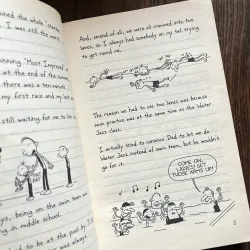 ained the whole "starter
I was still the worst
ginning "Most Improved
at the end of the summer
there was a
my first race and my last
still waiting for me to
ays, being on the swim
ng in middle school.
to be at the pool by 7:30
was always
And, second of all, we were all crammed into two
lanes, so I always had somebody on my tail trying
to get around me.
The reason we had to use two lanes was because
swim practice was at the same time as the Water
Jazz class.
I actually tried to convince Dad to let me do
Water Jazz instead of swim team, but he wouldn't
go for it.
COME ON,
LADIES! GET
THOSE ARMS UP!
5